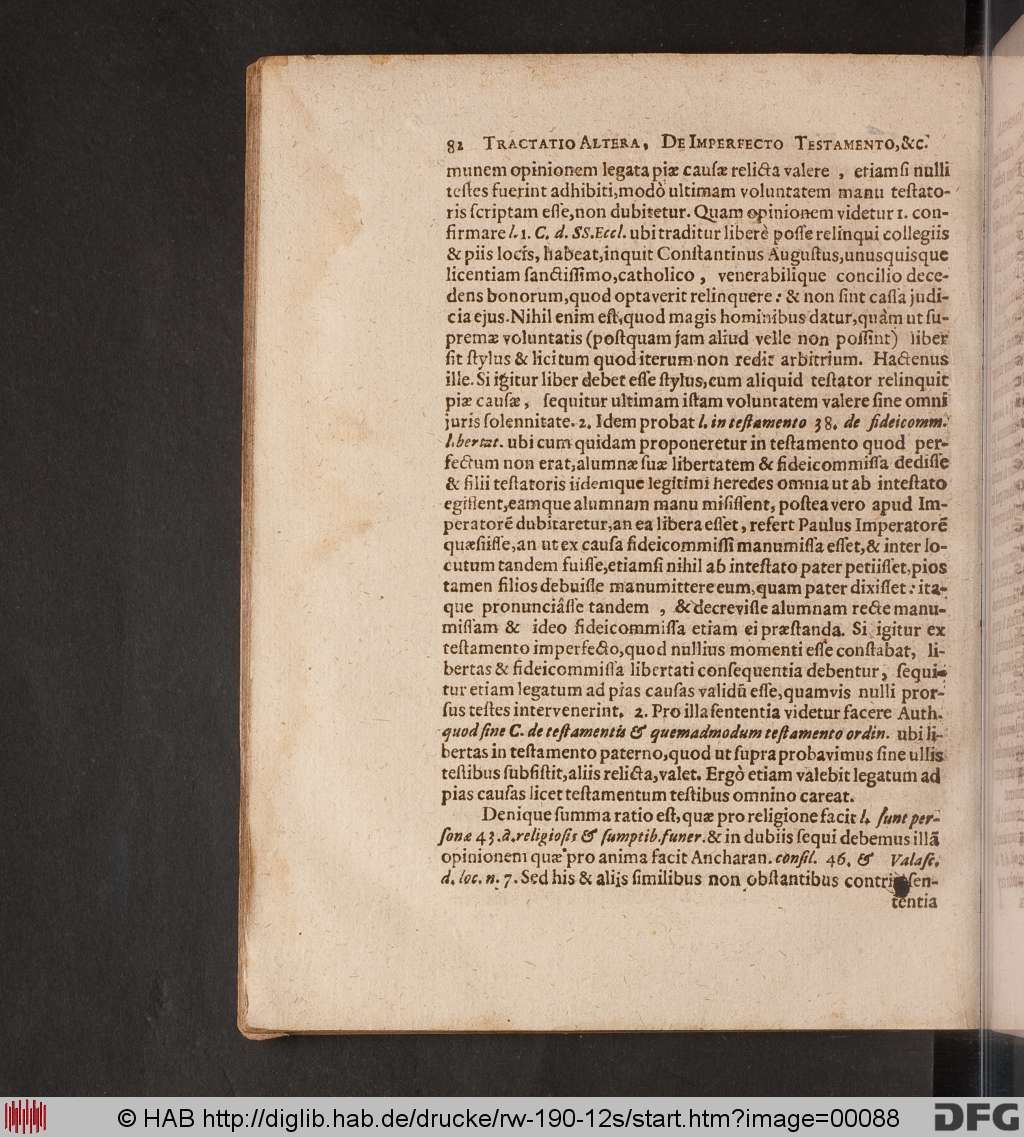 82 TRACTATIO ALTERA, DE IMPERFECTO TESTAMENTO, &c.
munem opinionem legata piæ cauſæ relicta valere , etiamſi nulli
teſtes fuerint adhibiti, modò ultimam voluntatem manu teſtato-
ris ſcriptam eſſe, non dubitetur. Quam opinionem videtur 1. con-
firmare l. 1. C. d. SS. Eccl. ubi traditur liberè poſſe relinqui collegiis
& piis locis, habeat, inquit Conſtantinus Auguſtus, unusquisque
licentiam ſanctiſſimo, catholico , venerabilique concilio dece-
dens bonorum, quod optaverit relinquere: & non ſint caſſa judi-
cia ejus. Nihil enim eſt, quod magis hominibus datur, quàm ut ſu-
premæ voluntatis (poſtquam jam aliud velle non poſſint) liber
ſit ſtylus & licitum quod iterum non redit arbitrium. Hactenus
ille. Si igitur liber debet eſſe ſtylus, cum aliquid teſtator relinquit
piæ cauſæ, ſequitur ultimam iſtam voluntatem valere ſine omni
juris ſolennitate. 2. Idem probat l. in teſtamento 38. de fideicomm.
libertat. ubi cum quidam proponeretur in teſtamento quod per-
fectum non erat, alumnæ ſuæ libertatem & fideicommiſſa dediſſe
& filii teſtatoris iidemque legitimi heredes omnia ut ab inteſtato
egiſſent, eamque alumnam manu miſiſſent, poſtea vero apud Im-
peratorē dubitaretur, an ea libera eſſet, refert Paulus Imperatorē
quæſiiſſe, an ut ex cauſa fideicommiſſi manumiſſa eſſet, & inter lo-
cutum tandem fuiſſe, etiamſi nihil ab inteſtato pater petiiſſet, pios
tamen filios debuiſſe manumittere eum, quam pater dixiſſet: ita-
que pronunciâſſe tandem , & decreviſſe alumnam recte manu-
miſſam & ideo fideicommiſſa etiam ei præſtanda. Si igitur ex
teſtamento imperfecto, quod nullius momenti eſſe conſtabat, li-
bertas & fideicommiſſa libertati conſequentia debentur, ſequi-
tur etiam legatum ad pias cauſas validū eſſe, quamvis nulli pror-
ſus teſtes intervenerint. 2. Pro illa ſententia videtur facere Auth.
quod ſine C. de teſtamentis & quemadmodum teſtamento ordin. ubi li-
bertas in teſtamento paterno, quod ut ſupra probavimus ſine ullis
teſtibus ſubſiſtit, aliis relicta, valet. Ergò etiam valebit legatum ad
pias cauſas licet teſtamentum teſtibus omnino careat.
Denique ſumma ratio eſt, quæ pro religione facit l. ſunt per-
ſonæ 43. d. religioſis & ſumptib. funer. & in dubiis ſequi debemus illā
opinionem quæ pro anima facit Ancharan. conſil. 46. & Valaſc.
d. loc. n. 7. Sed his & aliis ſimilibus non obſtantibus ſen-
tentia
© HAB http://diglib.hab.de/drucke/rw-190-12s/start.htm?image=00088
DFG